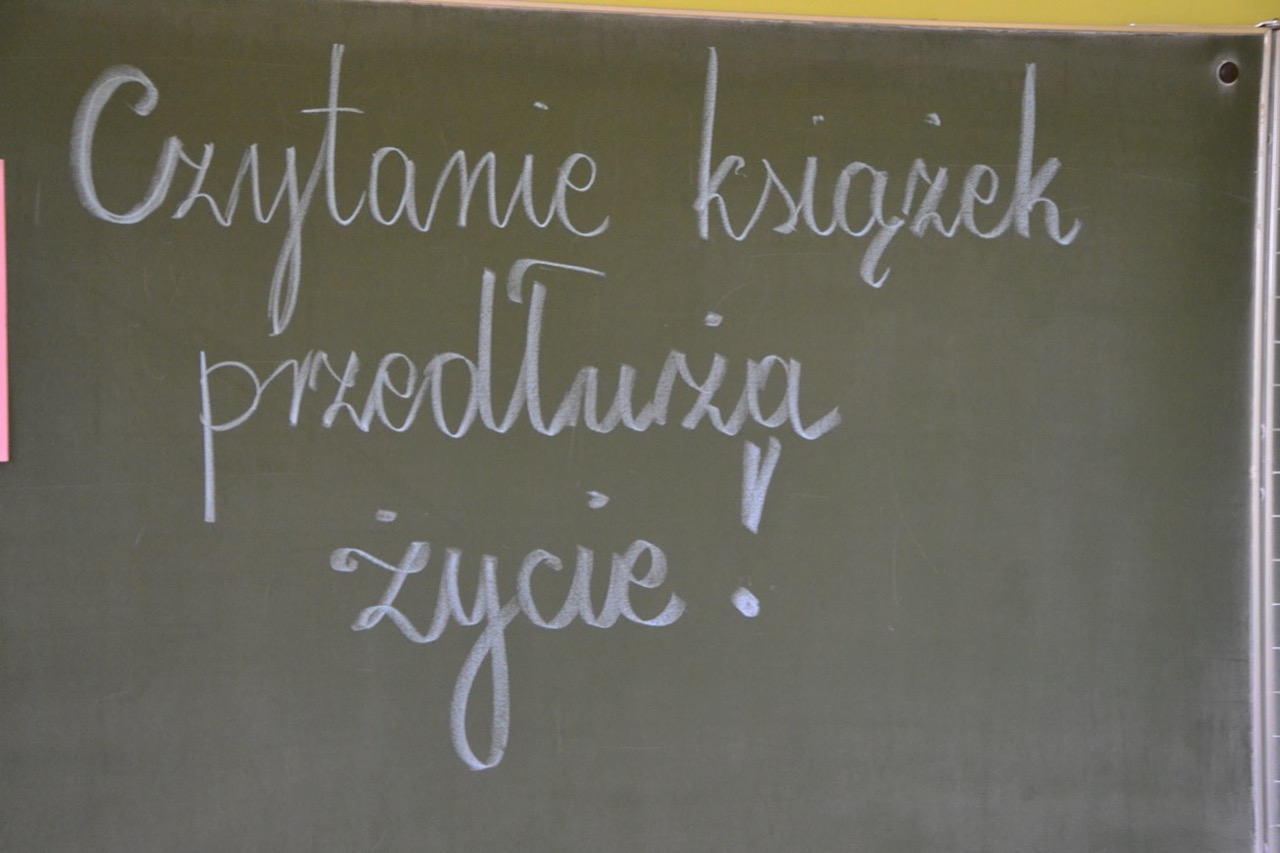 Czytanie książek
przedłuża
życie!